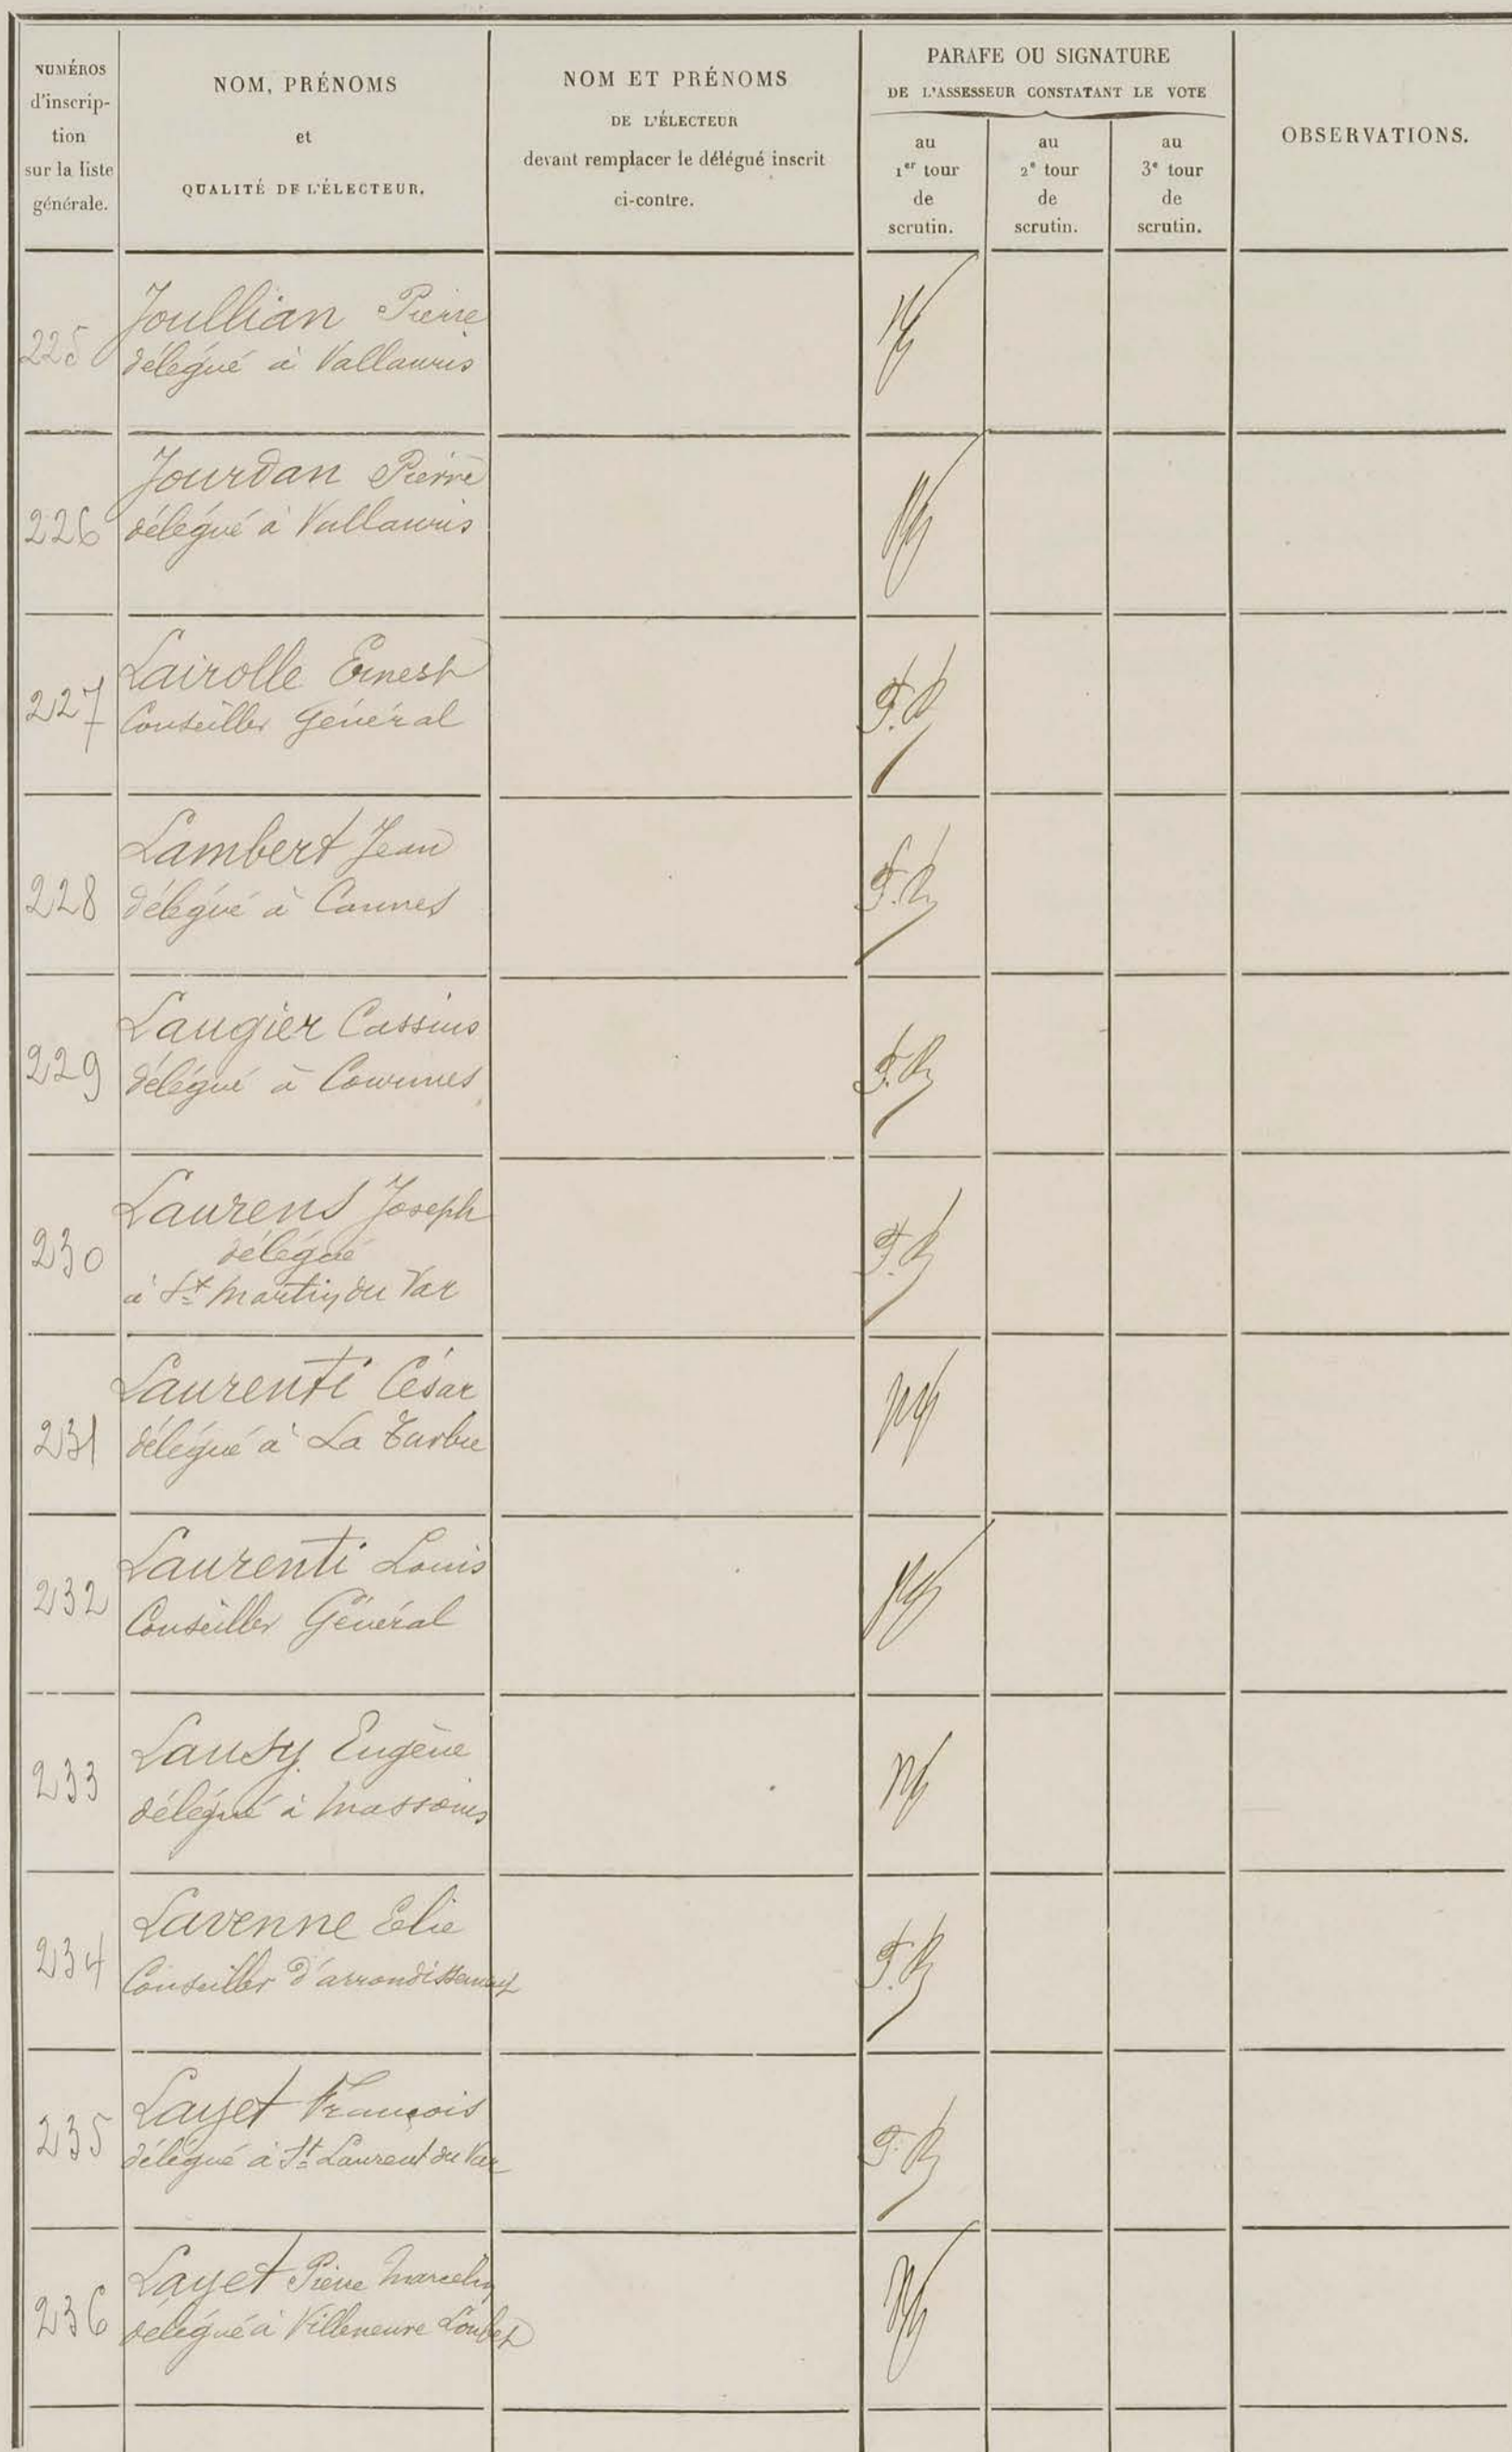 NUMÉROS
d'inscrip-
tion
sur la liste
générale.
NOM, PRÉNOMS
et
QUALITÉ DE L'ÉLECTEUR.
NOM ET PRÉNOMS
DE L'ÉLECTEUR
devant remplacer le délégué inscrit
ci-contre.
PARAFE OU SIGNATURE
DE L'ASSESSEUR CONSTATANT LE VOTE
au
1er tour
de
scrutin.
au
2e tour
de
scrutin.
au
3e tour
de
scrutin.
OBSERVATIONS.
225
Joullian Pierre
délégué à Vallauris
226
Jourdan Pierre
délégué à Vallauris
227
Lairolle Ernest
Conseiller Général
228
Lambert Jean
délégué à Cannes
229
Laugier Cassius
délégué à
230
Laurens Joseph
délégué
à St Martin du Var
231
Laurenti César
délégué à La Turbie
232
Laurenti Louis
Conseiller Général
233
Lausy Eugène
délégué à Massoins
234
Lavenne Elie
Conseiller d'arrondissement
235
Layet François
délégué à St Laurent du Var
236
Layet Pierre Marcelin
délégué à Villeneuve Loubet